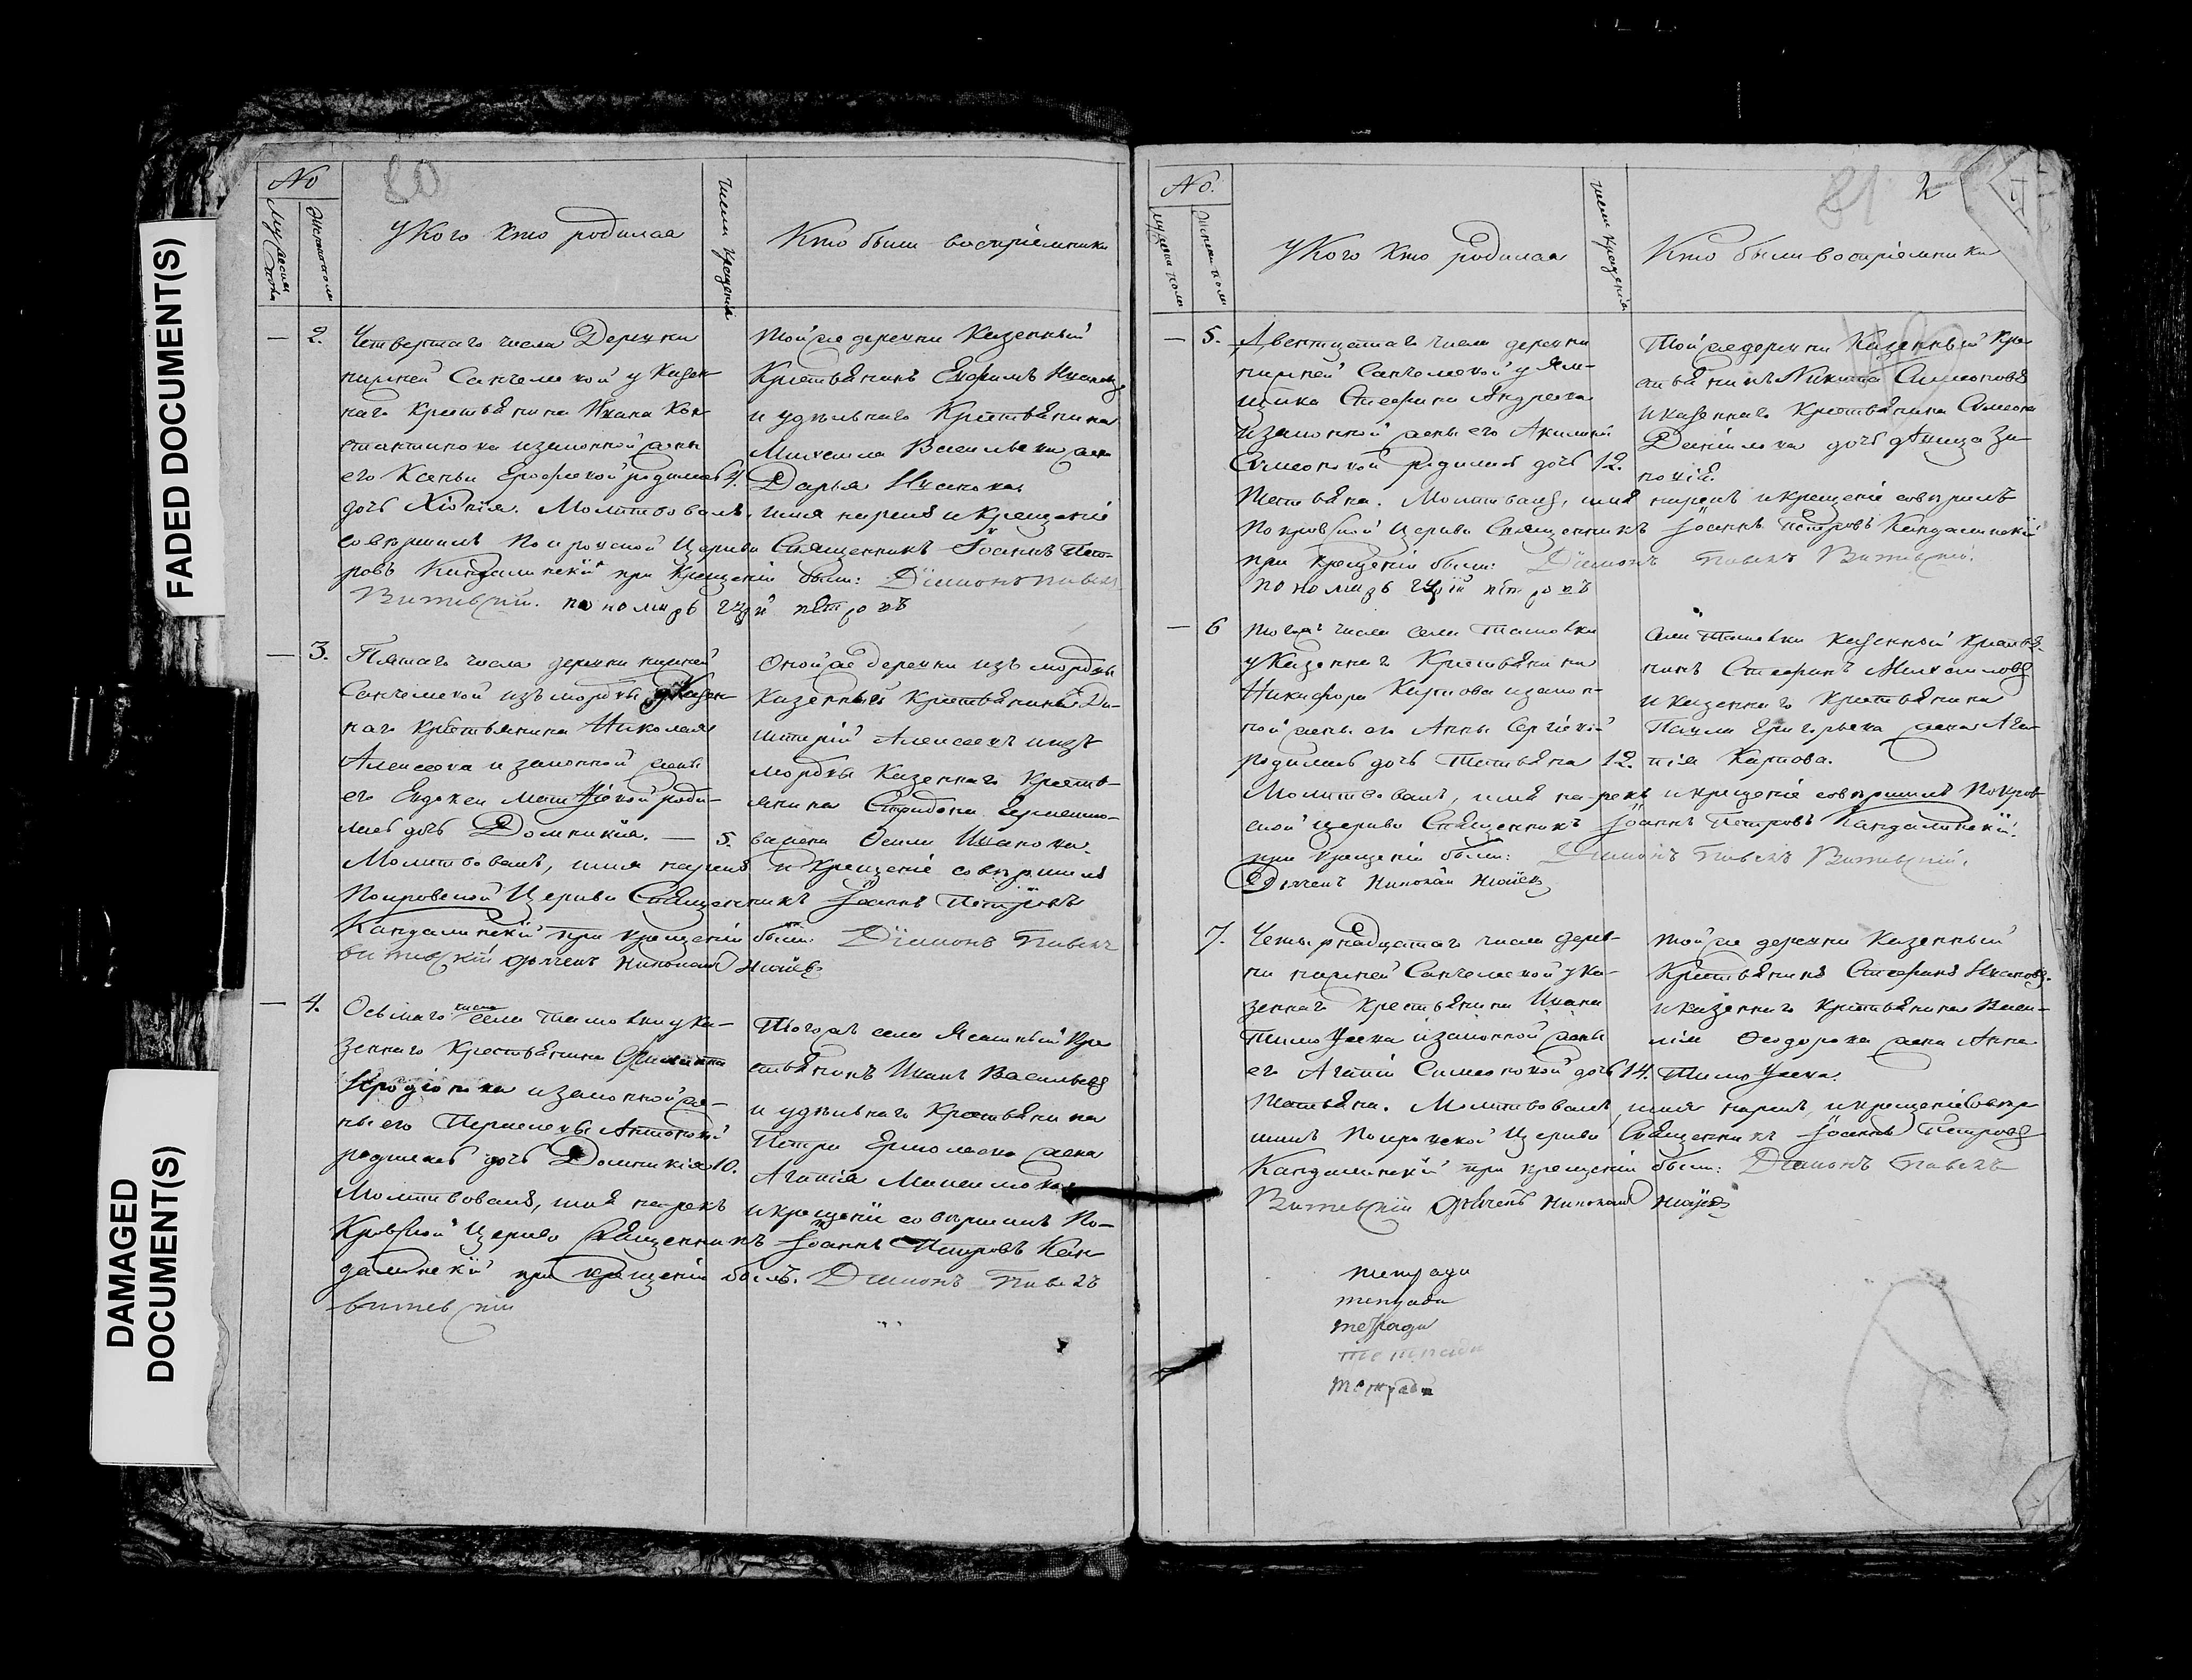 FADED DOCUMENT(S)
DAMAGED
DOCUMENT(S)
80
No
Мужеска пола
Женска пола
У Кого кто родился
Числа крещенія
Кто были воспріемники
— 2.
Четвертаго числа Деревни
нижней Санчелеской у Казен
наго крестьянина Ивана Кон
стантинова и законной жены
его Ксеньи Ерофеевой родилась 4.
дочь Хіонія. Молитвовалъ, имя нарекъ и крещеніе
совершилъ Покровской Церкви Священникъ Іоаннъ Пет-
ровъ Кандалинскій при крещеніи были: Діаконъ Павелъ
Витевскій. пономарь Петровъ
Той же деревни Казенный
Крестьянинъ Ефимъ Ивановъ
и удѣльнаго Крестьянина
Михаила Васильева жена
Дарья Иванова
— 3.
Пятаго числа деревни нижней
Санчелеской изъ мордвы у Казен
наго крестьянина Николая
Алексеева и законной жены
его Евдокеи Матфіевой роди-
лась дочь Домникія. — 5.
Молитвовалъ, имя нарекъ и крещеніе совершилъ
Покровской Церкви Священникъ Іоаннъ Петровъ
Кандалинскій при крещеніи были: Діаконъ Павелъ
Витевскій дьячекъ Николай
Оной же деревни изъ мордвы
Казенный Крестьянинъ Ди-
митрій Алексеевъ и изъ
мордвы Казеннаго Кресть-
янина Спиридона
Иванова.
— 4.
Осьмаго числа села Ташовки у Ка-
зеннаго Крестьянина Филиппа
Иродіонова и законной же-
ны его Антоновой
родилась дочь Домникія 10.
Молитвовалъ, имя нарекъ и крещеніе совершилъ По-
кровской Церкви Священникъ Іоаннъ Петровъ Кан
далинскій при крещеніи былъ. Діаконъ Павелъ
Витевскій
Тогожъ села Ясашный Кре
стьянинъ Иванъ Васильевъ
и удѣльнаго Крестьянина
Петра Ермолаева жена
Агафія Максимова
81
2
No.
Мужеска пола
Женска пола
У Кого кто родился
Числа крещенія
Кто были воспріемники
— 5.
Двенатцатаго числа деревни
нижней Санчелеской у Ям-
щика Стефана Андреева
и законной жены его Акилины
Симеоновой родилась дочь 12.
Татьяна. Молитвовалъ, имя нарекъ и крещеніе совершилъ
Покровской Церкви Священникъ Іоаннъ Петровъ Кандалинскій
при крещеніи были: Діаконъ Павелъ Витевскій.
пономарь Петровъ
Той же деревни Казенный Кре
стьянинъ Никита Симеоновъ
и казеннаго Крестьянина Симеона
Данилова дочь дѣвица Зи-
новія.
— 6
тогожъ числа села Ташовки
у Казеннаго Крестьянина
Никифора Карпова и закон-
ной жены его Анны Сергіевой
родилась дочь Татьяна 12.
Молитвовалъ, имя нарекъ и крещеніе совершилъ Покров
ской Церкви Священникъ Іоаннъ Петровъ Кандалинскій.
при крещеніи были: Діаконъ Павелъ Витевскій.
Дьячекъ Николай
села Ташовки казенный Крестья-
нинъ Стефанъ Михайловъ
и казеннаго Крестьянина
Павла Григорьева жена Ага-
пія Карпова.
7.
Четырнадцатаго числа дерев-
ни нижней Санчелеской у Ка-
зеннаго Крестьянина Ивана
Тимофеева и законной жены
его Агапіи Симеоновой дочь 14.
Татьяна. Молитвовалъ имя нарекъ, и крещеніе совер
шилъ Покровской Церкви Священникъ Іоаннъ Петровъ
Кандалинскій при крещеніи были: Діаконъ Павелъ
Витевскій дьячекъ Николай
той же деревни Казенный
Крестьянинъ Стефанъ Ивановъ.
и казеннаго Крестьянина Васи-
лія Феодорова жена Анна
Тимофеева.
тетради
тетради
тетради
тетради
тетради